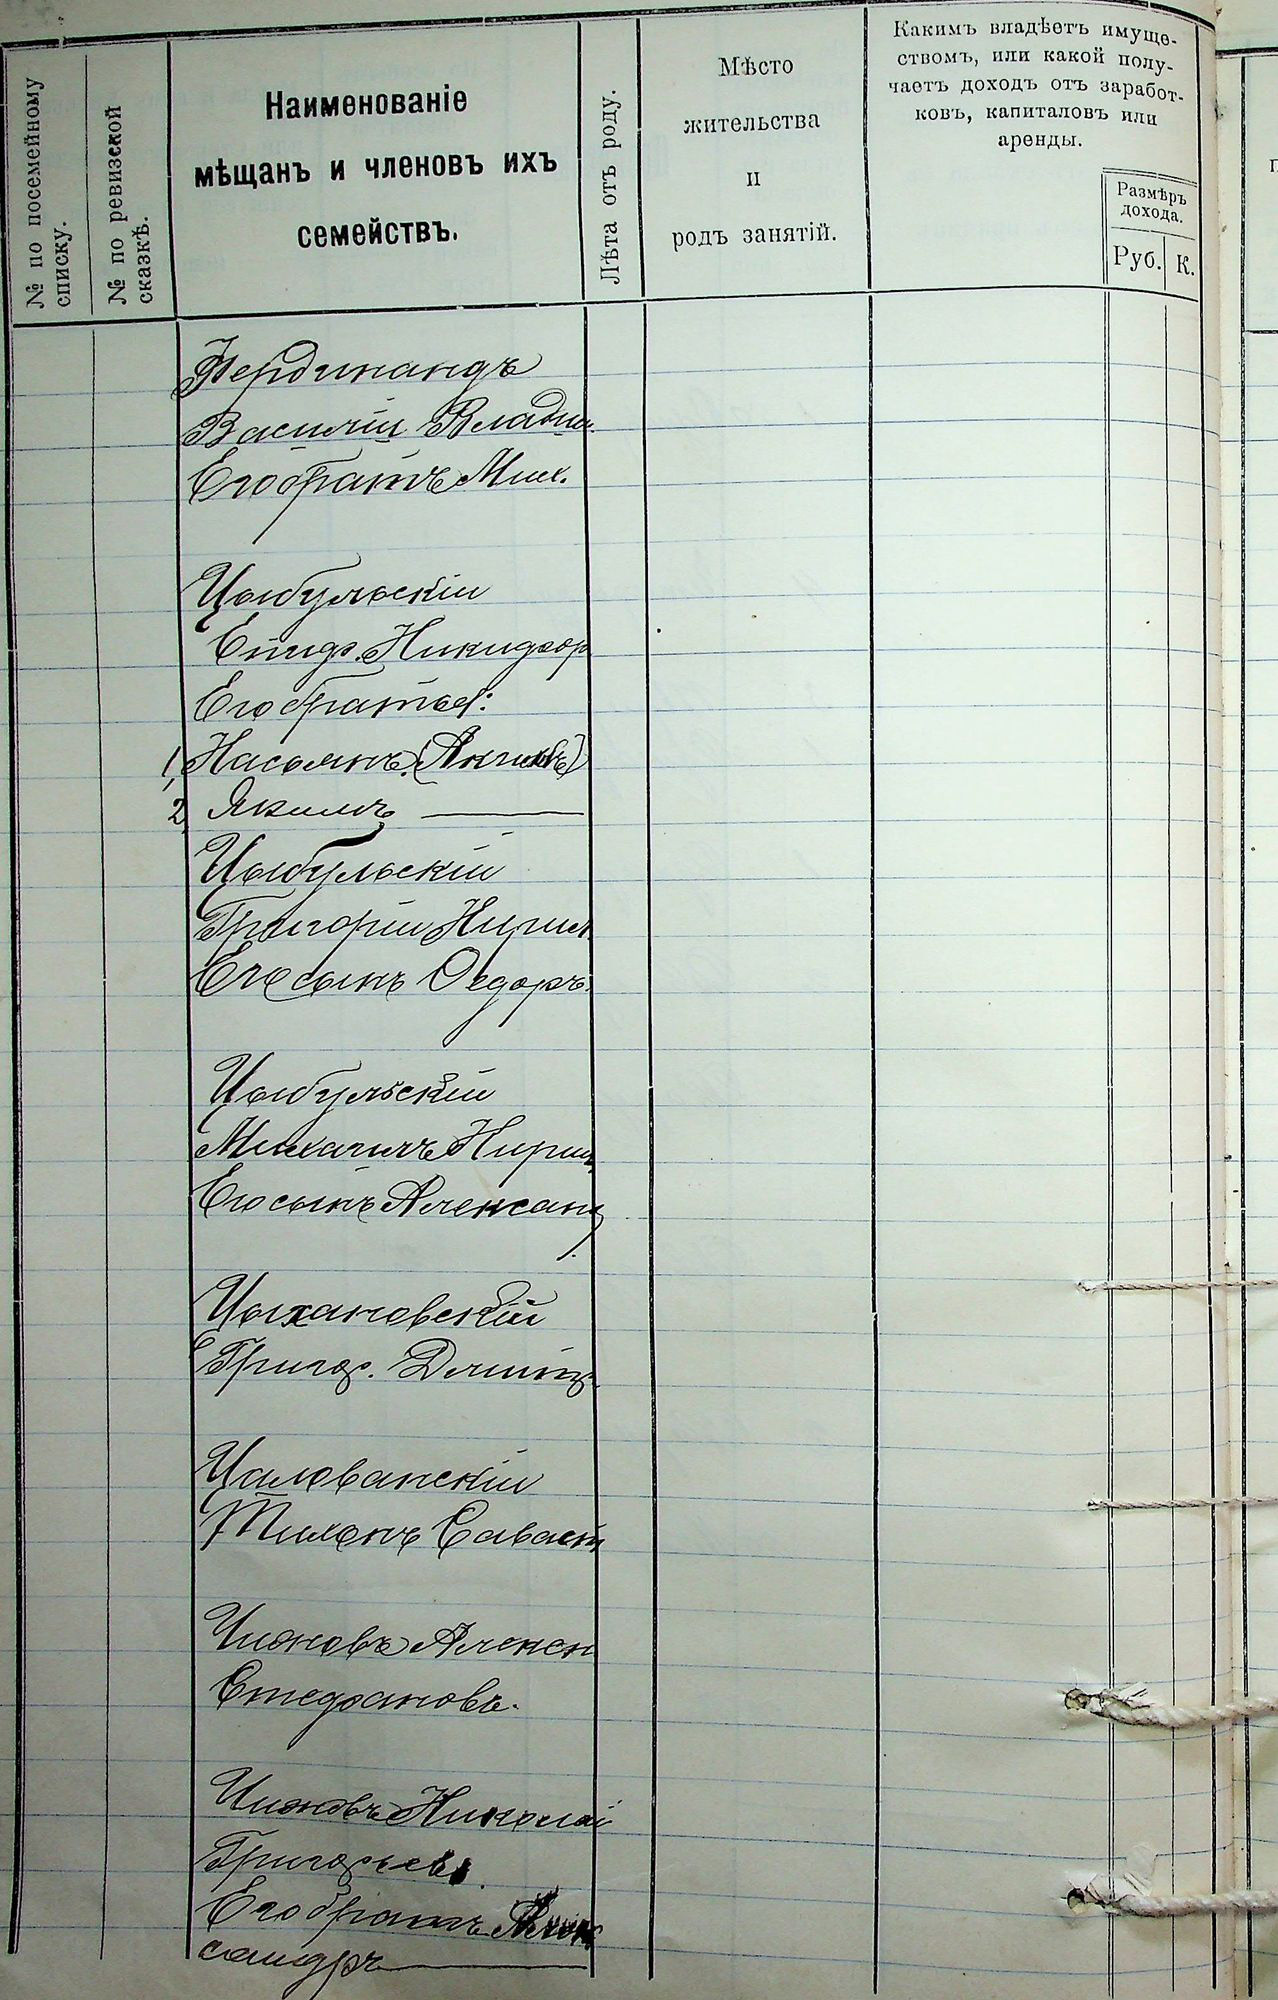 № по посемейному
списку.
№ по ревизской
сказкѣ.
Наименованіе
мѣщанъ и членовъ ихъ
семействъ.
Лѣта отъ роду.
Мѣсто
жительства
и
родъ занятій.
Какимъ владѣетъ имуще-
ствомъ, или какой полу-
чаетъ доходъ отъ заработ-
ковъ, капиталовъ или
аренды.
Размѣръ
дохода.
Руб.
К.
Фердинандъ
Василій Влади.
Его братъ Мих.
Цыбульскій
Никифор
Его братья:
1, Касьянъ.
2, Якимъ
Цыбульскій
Григорій Кирил.
Его сынъ Ѳедоръ.
Цыбульскій
Михаилъ Кирил.
Его сынъ Александ
Цыхановскій
Григор. Дмитр.
Цалованскій
Тихонъ Саваст
Чижовъ Алексѣ
Стефановъ.
Чижовъ Николай
Григорьевъ.
Его братъ Алек
сандръ